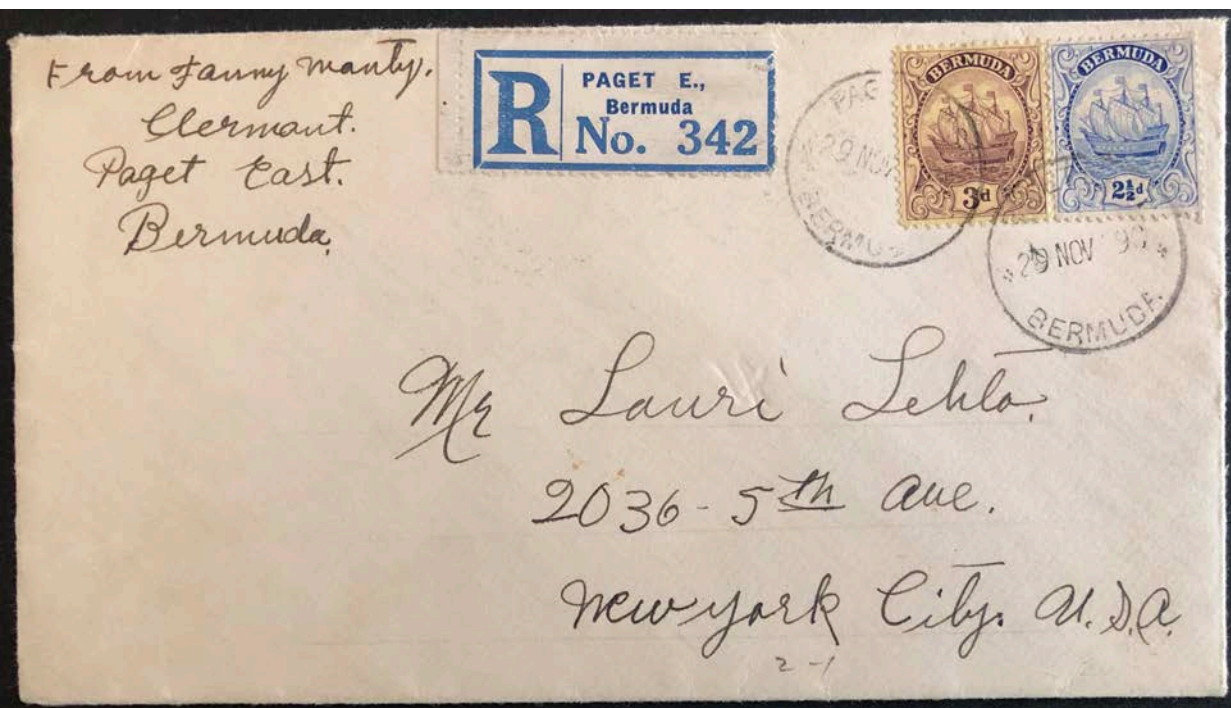 From Fanny Manty.
Clermont.
Paget East.
Bermuda,
R
PAGET E.,
Bermuda
No. 342
BERMUDA
3d
BERMUDA
2½d
29 NOV
29 NOV
Mr Lauri Lehto.
2036 - 5th Ave.
New York City. U.S.A.
2-1